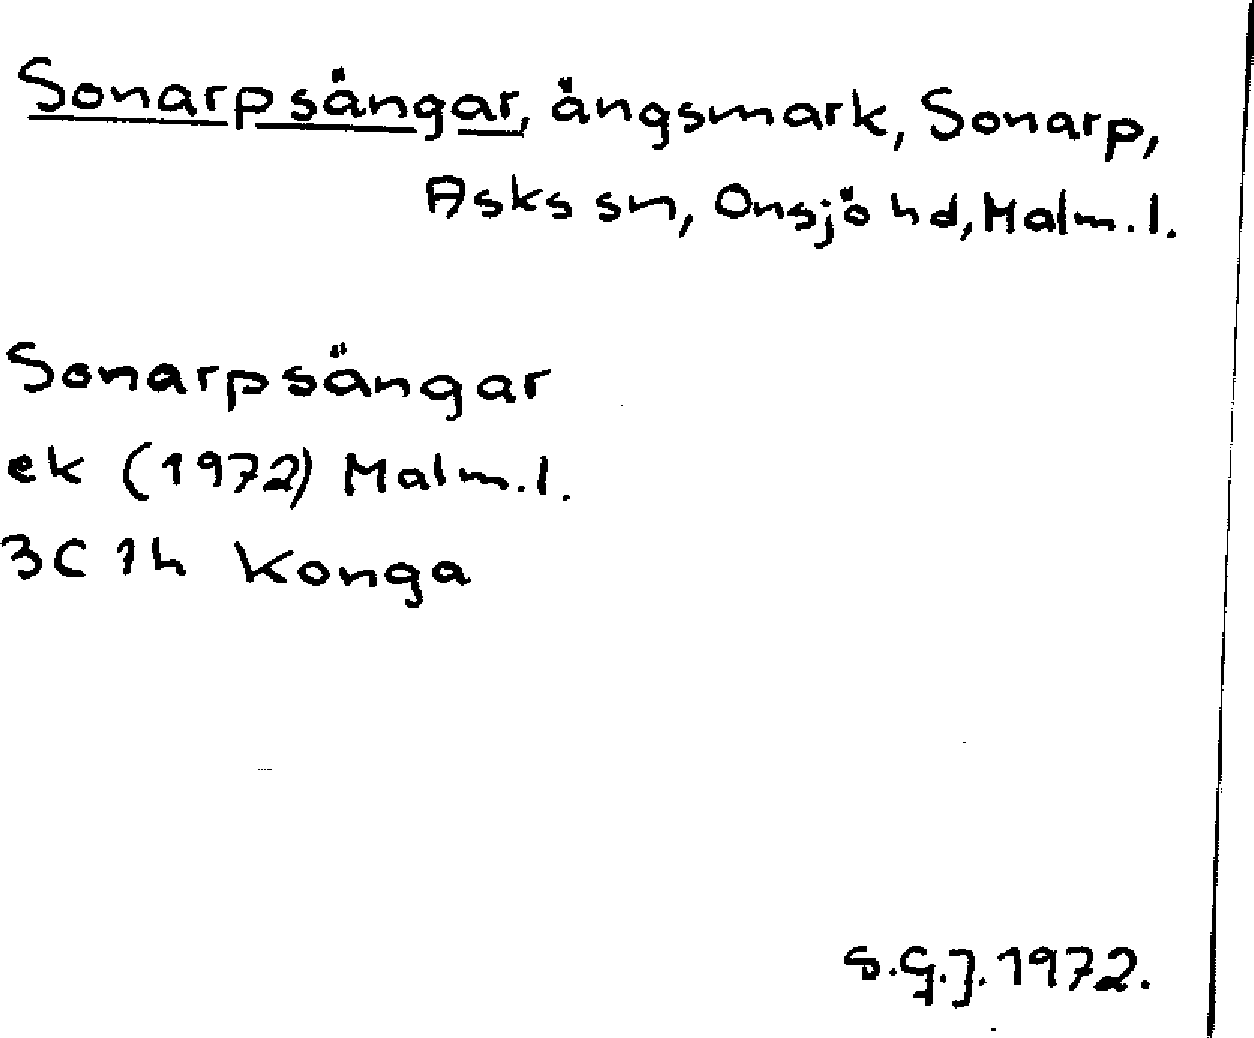 Sonarpsängar, ängsmark, Sonarp,
Asks sn, Onsjö hd, Malm. l.
Sonarpsängar
ek (1972) Malm. l.
3C 1h Konga
S.G.J. 1972.